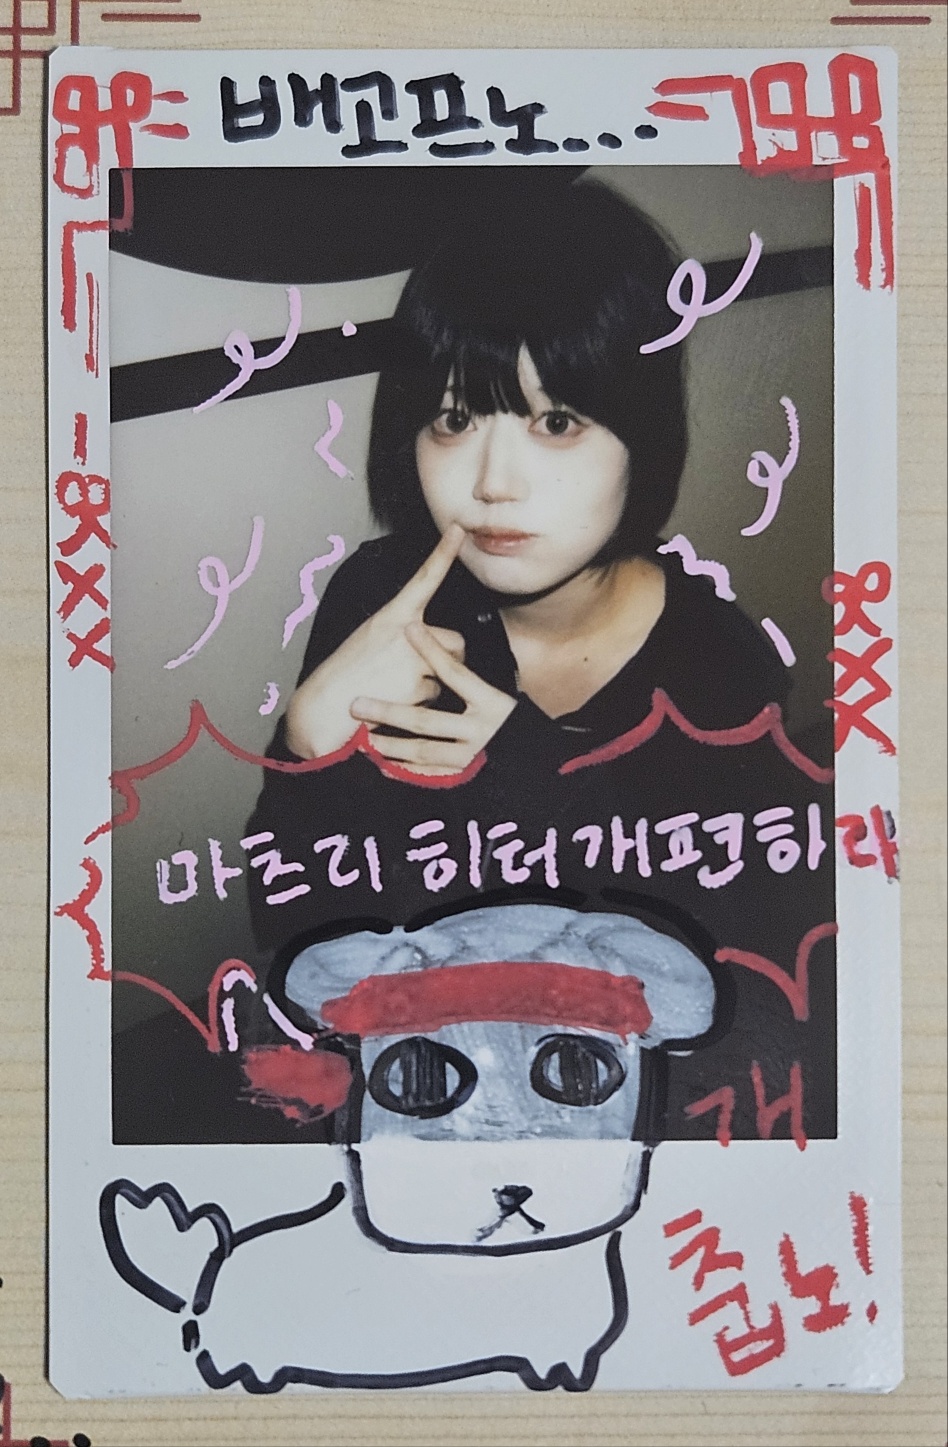 배고프노...
마츠리 히터 개편하다
개
춥노!